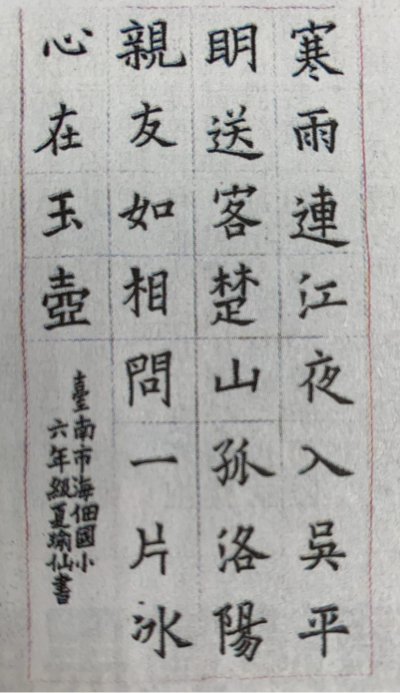 寒雨連江夜入吳平
明送客楚山孤洛陽
親友如相問一片冰
心在玉壺
臺南市海佃國小
六年級夏瑜仙書